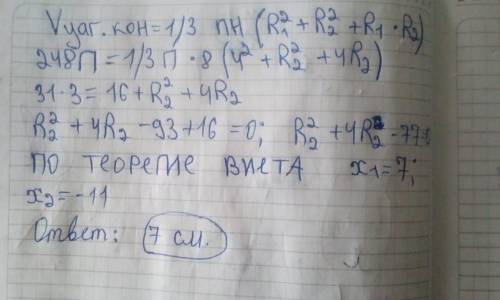 Vусг. кон = 1/3 ПН (R₁² + R₂² + R₁ · R₂)
248П = 1/3 П · 8 (4² + R₂² + 4R₂)
31 · 3 = 16 + R₂² + 4R₂
R₂² + 4R₂ - 93 + 16 = 0; R₂² + 4R₂ - 77=0
ПО ТЕОРЕМЕ ВИЕТА x₁ = 7;
x₂ = -11
Ответ: 7 см.